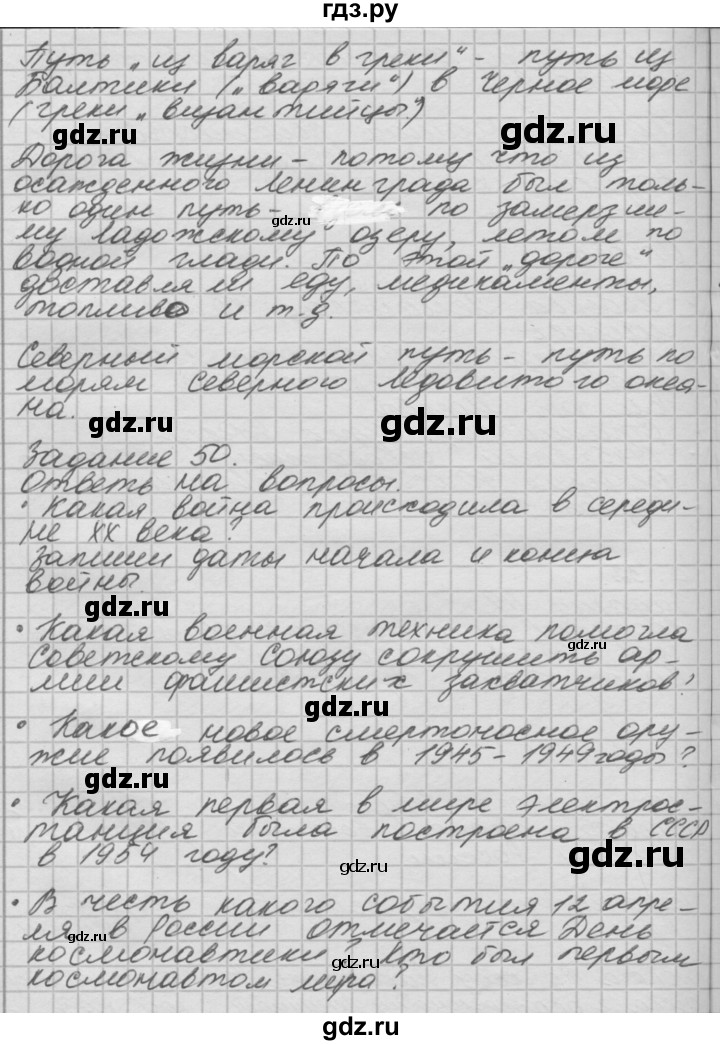 гдз.ру
Путь „из варяг в греки“ - путь из
Балтики („варяги“) в Черное море
(греки „византийцы“)
gdz.ru
gdz.ru
Дорога жизни - потому что из
осажденного Ленинграда был толь-
ко один путь- по замерзше-
му Ладожскому озеру, летом по
водной глади. По этой „дороге“
доставляли еду, медикаменты,
топливо и т.д.
gdz.ru
gdz.ru
Северный морской путь - путь по
морям Северного Ледовитого океа-
на.
gdz.ru
gdz.ru
Задание 50.
Ответь на вопросы.
· Какая война происходила в середи-
не XX века?
Запиши даты начала и конца
войны.
gdz.ru
gdz.ru
· Какая военная техника помогла
Советскому Союзу сокрушить ар-
мии фашистских захватчиков?
gdz.ru
· Какое новое смертоносное ору-
жие появилось в 1945-1949 годы?
gdz.ru
gdz.ru
· Какая первая в мире электрос-
танция была построена в СССР
в 1954 году?
gdz.ru
gdz.ru
· В честь какого события 12 апре-
ля в России отмечается День
космонавтики? Кто был первым
космонавтом мира?
gdz.ru
gdz.ru
gdz.ru